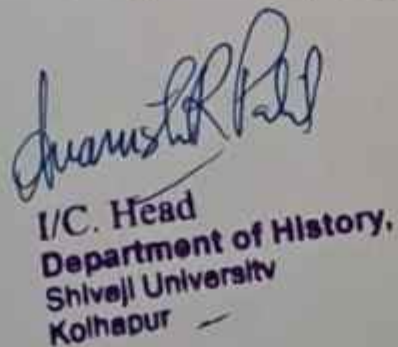 I/C. Head
Department of History,
Shivaji University
Kolhapur